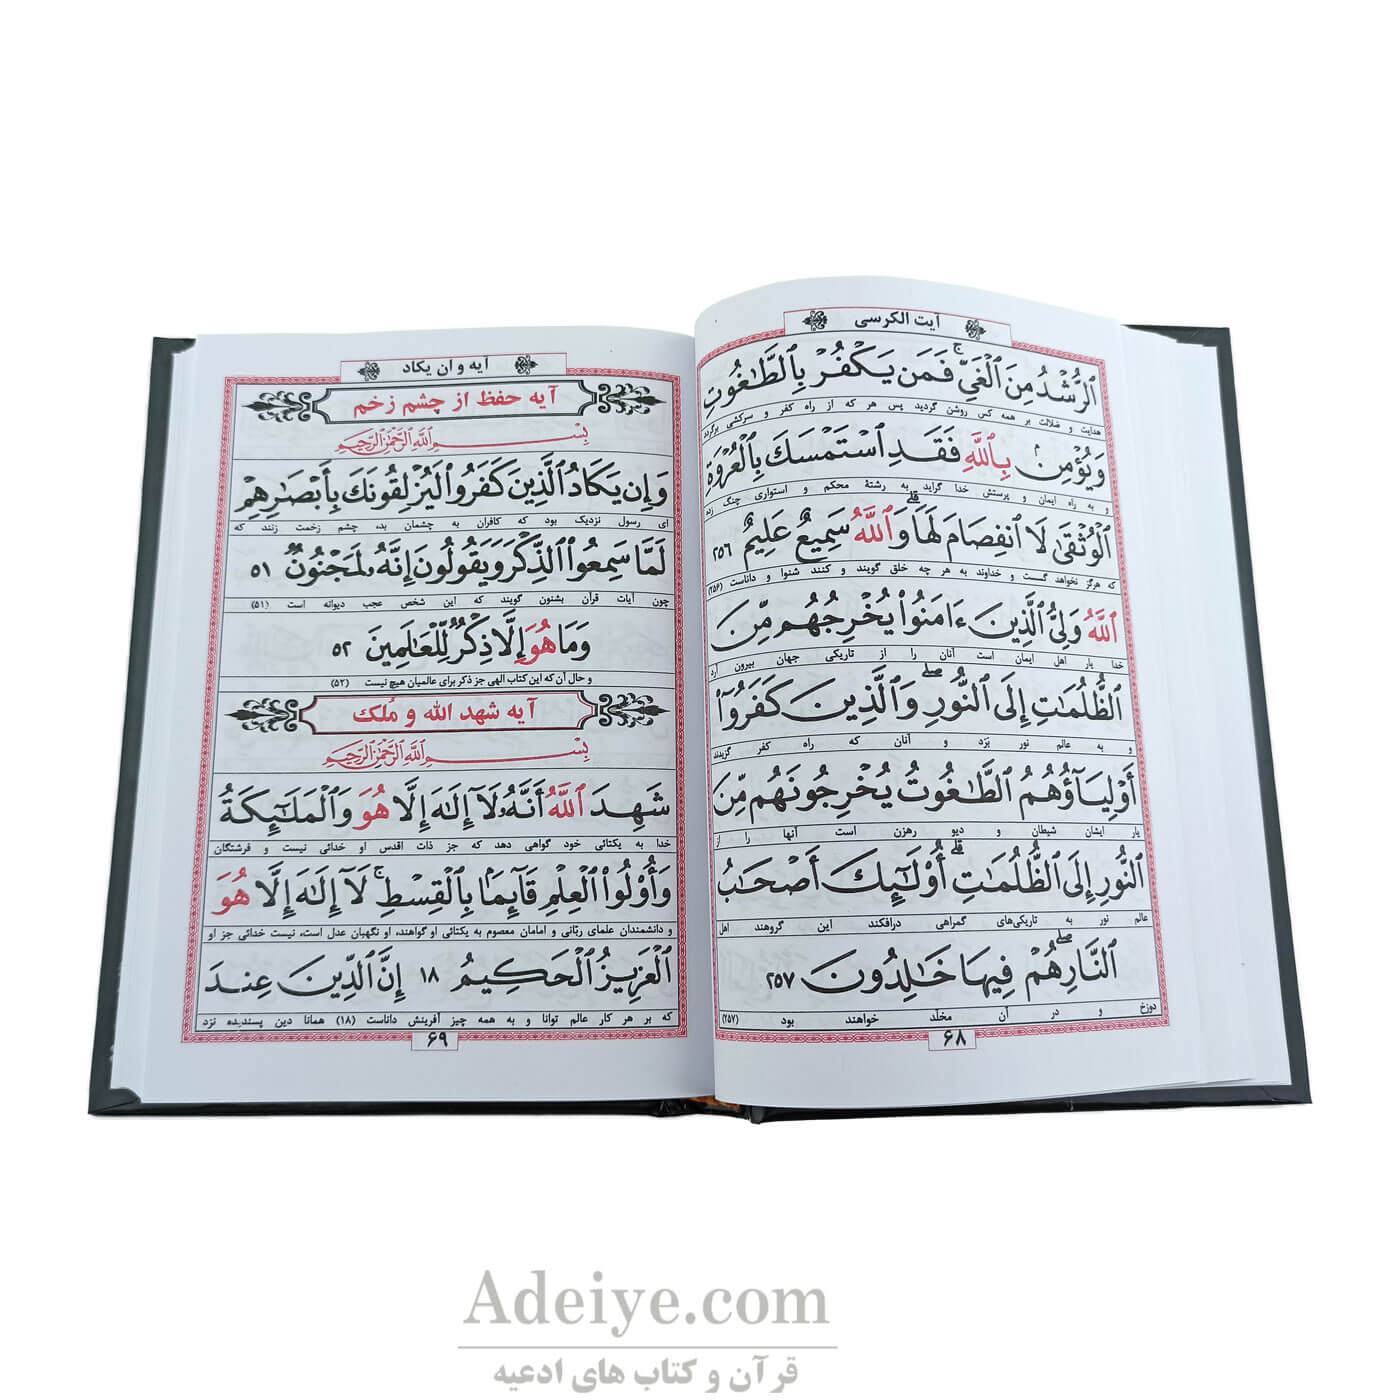 آیت الکرسی
ٱلرُّشْدُ مِنَ ٱلْغَيِّ ۚ فَمَن يَكْفُرْ بِٱلطَّـٰغُوتِ
هدایت و ضلالت بر همه کس روشن گردید پس هر که از راه کفر و سرکشی برگردد
وَيُؤْمِنۢ بِٱللَّهِ فَقَدِ ٱسْتَمْسَكَ بِٱلْعُرْوَةِ
و به راه ایمان و پرستش خدا گراید به رشتهٔ محکم و استواری چنگ زده
ٱلْوُثْقَىٰ لَا ٱنفِصَامَ لَهَا ۗ وَٱللَّهُ سَمِيعٌ عَلِيمٌ ۲۵۶
که هرگز نخواهد گسست و خداوند به هر چه خلق گویند و کنند شنوا و داناست (۲۵۶)
ٱللَّهُ وَلِيُّ ٱلَّذِينَ ءَامَنُوا۟ يُخْرِجُهُم مِّنَ
خدا یار اهل ایمان است آنان را از تاریکی جهان بیرون آرد
ٱلظُّلُمَـٰتِ إِلَى ٱلنُّورِ ۖ وَٱلَّذِينَ كَفَرُوٓا۟
و به عالم نور بَرَد و آنان که راه کفر گزیدند
أَوْلِيَآؤُهُمُ ٱلطَّـٰغُوتُ يُخْرِجُونَهُم مِّنَ
یار ایشان شیطان و دیو رهزن است آنها را از
ٱلنُّورِ إِلَى ٱلظُّلُمَـٰتِ ۗ أُو۟لَـٰٓئِكَ أَصْحَـٰبُ
عالم نور به تاریکی‌های گمراهی درافکند این گروهند اهل
ٱلنَّارِ ۖ هُمْ فِيهَا خَـٰلِدُونَ ۲۵۷
دوزخ و در آن مخلّد خواهند بود (۲۵۷)
۶۸
آیه و ان یکاد
آیه حفظ از چشم زخم
بِسْمِ ٱللَّهِ ٱلرَّحْمَـٰنِ ٱلرَّحِيمِ
وَإِن يَكَادُ ٱلَّذِينَ كَفَرُوا۟ لَيُزْلِقُونَكَ بِأَبْصَـٰرِهِمْ
ای رسول نزدیک بود که کافران به چشمان بد، چشم زخمت زنند که
لَمَّا سَمِعُوا۟ ٱلذِّكْرَ وَيَقُولُونَ إِنَّهُۥ لَمَجْنُونٌ ۵۱
چون آیات قرآن بشنون گویند که این شخص عجب دیوانه است (۵۱)
وَمَا هُوَ إِلَّا ذِكْرٌ لِّلْعَـٰلَمِينَ ۵۲
و حال آن که این کتاب الهی جز ذکر برای عالمیان هیچ نیست (۵۲)
آیه شهد الله و مُلک
بِسْمِ ٱللَّهِ ٱلرَّحْمَـٰنِ ٱلرَّحِيمِ
شَهِدَ ٱللَّهُ أَنَّهُۥ لَآ إِلَـٰهَ إِلَّا هُوَ وَٱلْمَلَـٰٓئِكَةُ
خدا به یکتائی خود گواهی دهد که جز ذات اقدس او خدائی نیست و فرشتگان
وَأُو۟لُوا۟ ٱلْعِلْمِ قَآئِمًۢا بِٱلْقِسْطِ ۚ لَآ إِلَـٰهَ إِلَّا هُوَ
و دانشمندان علمای ربّانی و امامان معصوم به یکتائی او گواهند، او نگهبان عدل است، نیست خدائی جز او
ٱلْعَزِيزُ ٱلْحَكِيمُ ۱۸ إِنَّ ٱلدِّينَ عِندَ
که بر هر کار عالم توانا و به همه چیز آفرینش داناست (۱۸) همانا دین پسندیده نزد
۶۹
Adeiye.com
قرآن و کتاب های ادعیه